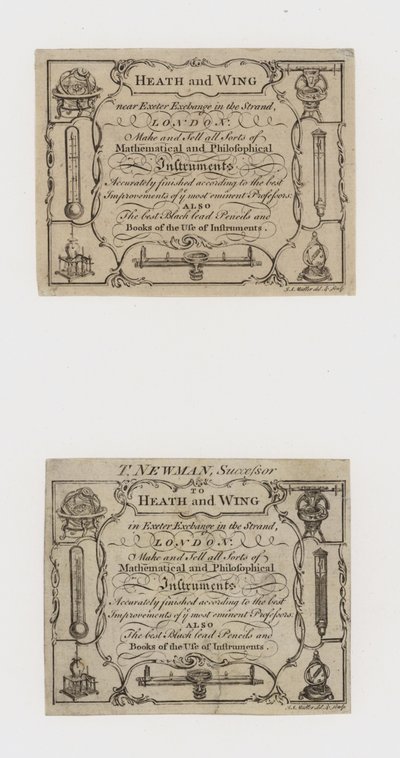 HEATH and WING
near Exeter Exchange in the Strand,
LONDON:
Make and Sell all Sorts of
Mathematical and Philoſophical
Inſtruments
Accurately finished according to the best
Improvements of yͤ most eminent Profeſsors:
ALSO
The best Black lead Pencils and
Books of the Uſe of Inſtruments.
T. NEWMAN, Succeſsor
TO
HEATH and WING
in Exeter Exchange in the Strand,
LONDON:
Make and Sell all Sorts of
Mathematical and Philoſophical
Inſtruments
Accurately finished according to the best
Improvements of yͤ most eminent Profeſsors:
ALSO
The best Black lead Pencils and
Books of the Uſe of Inſtruments.